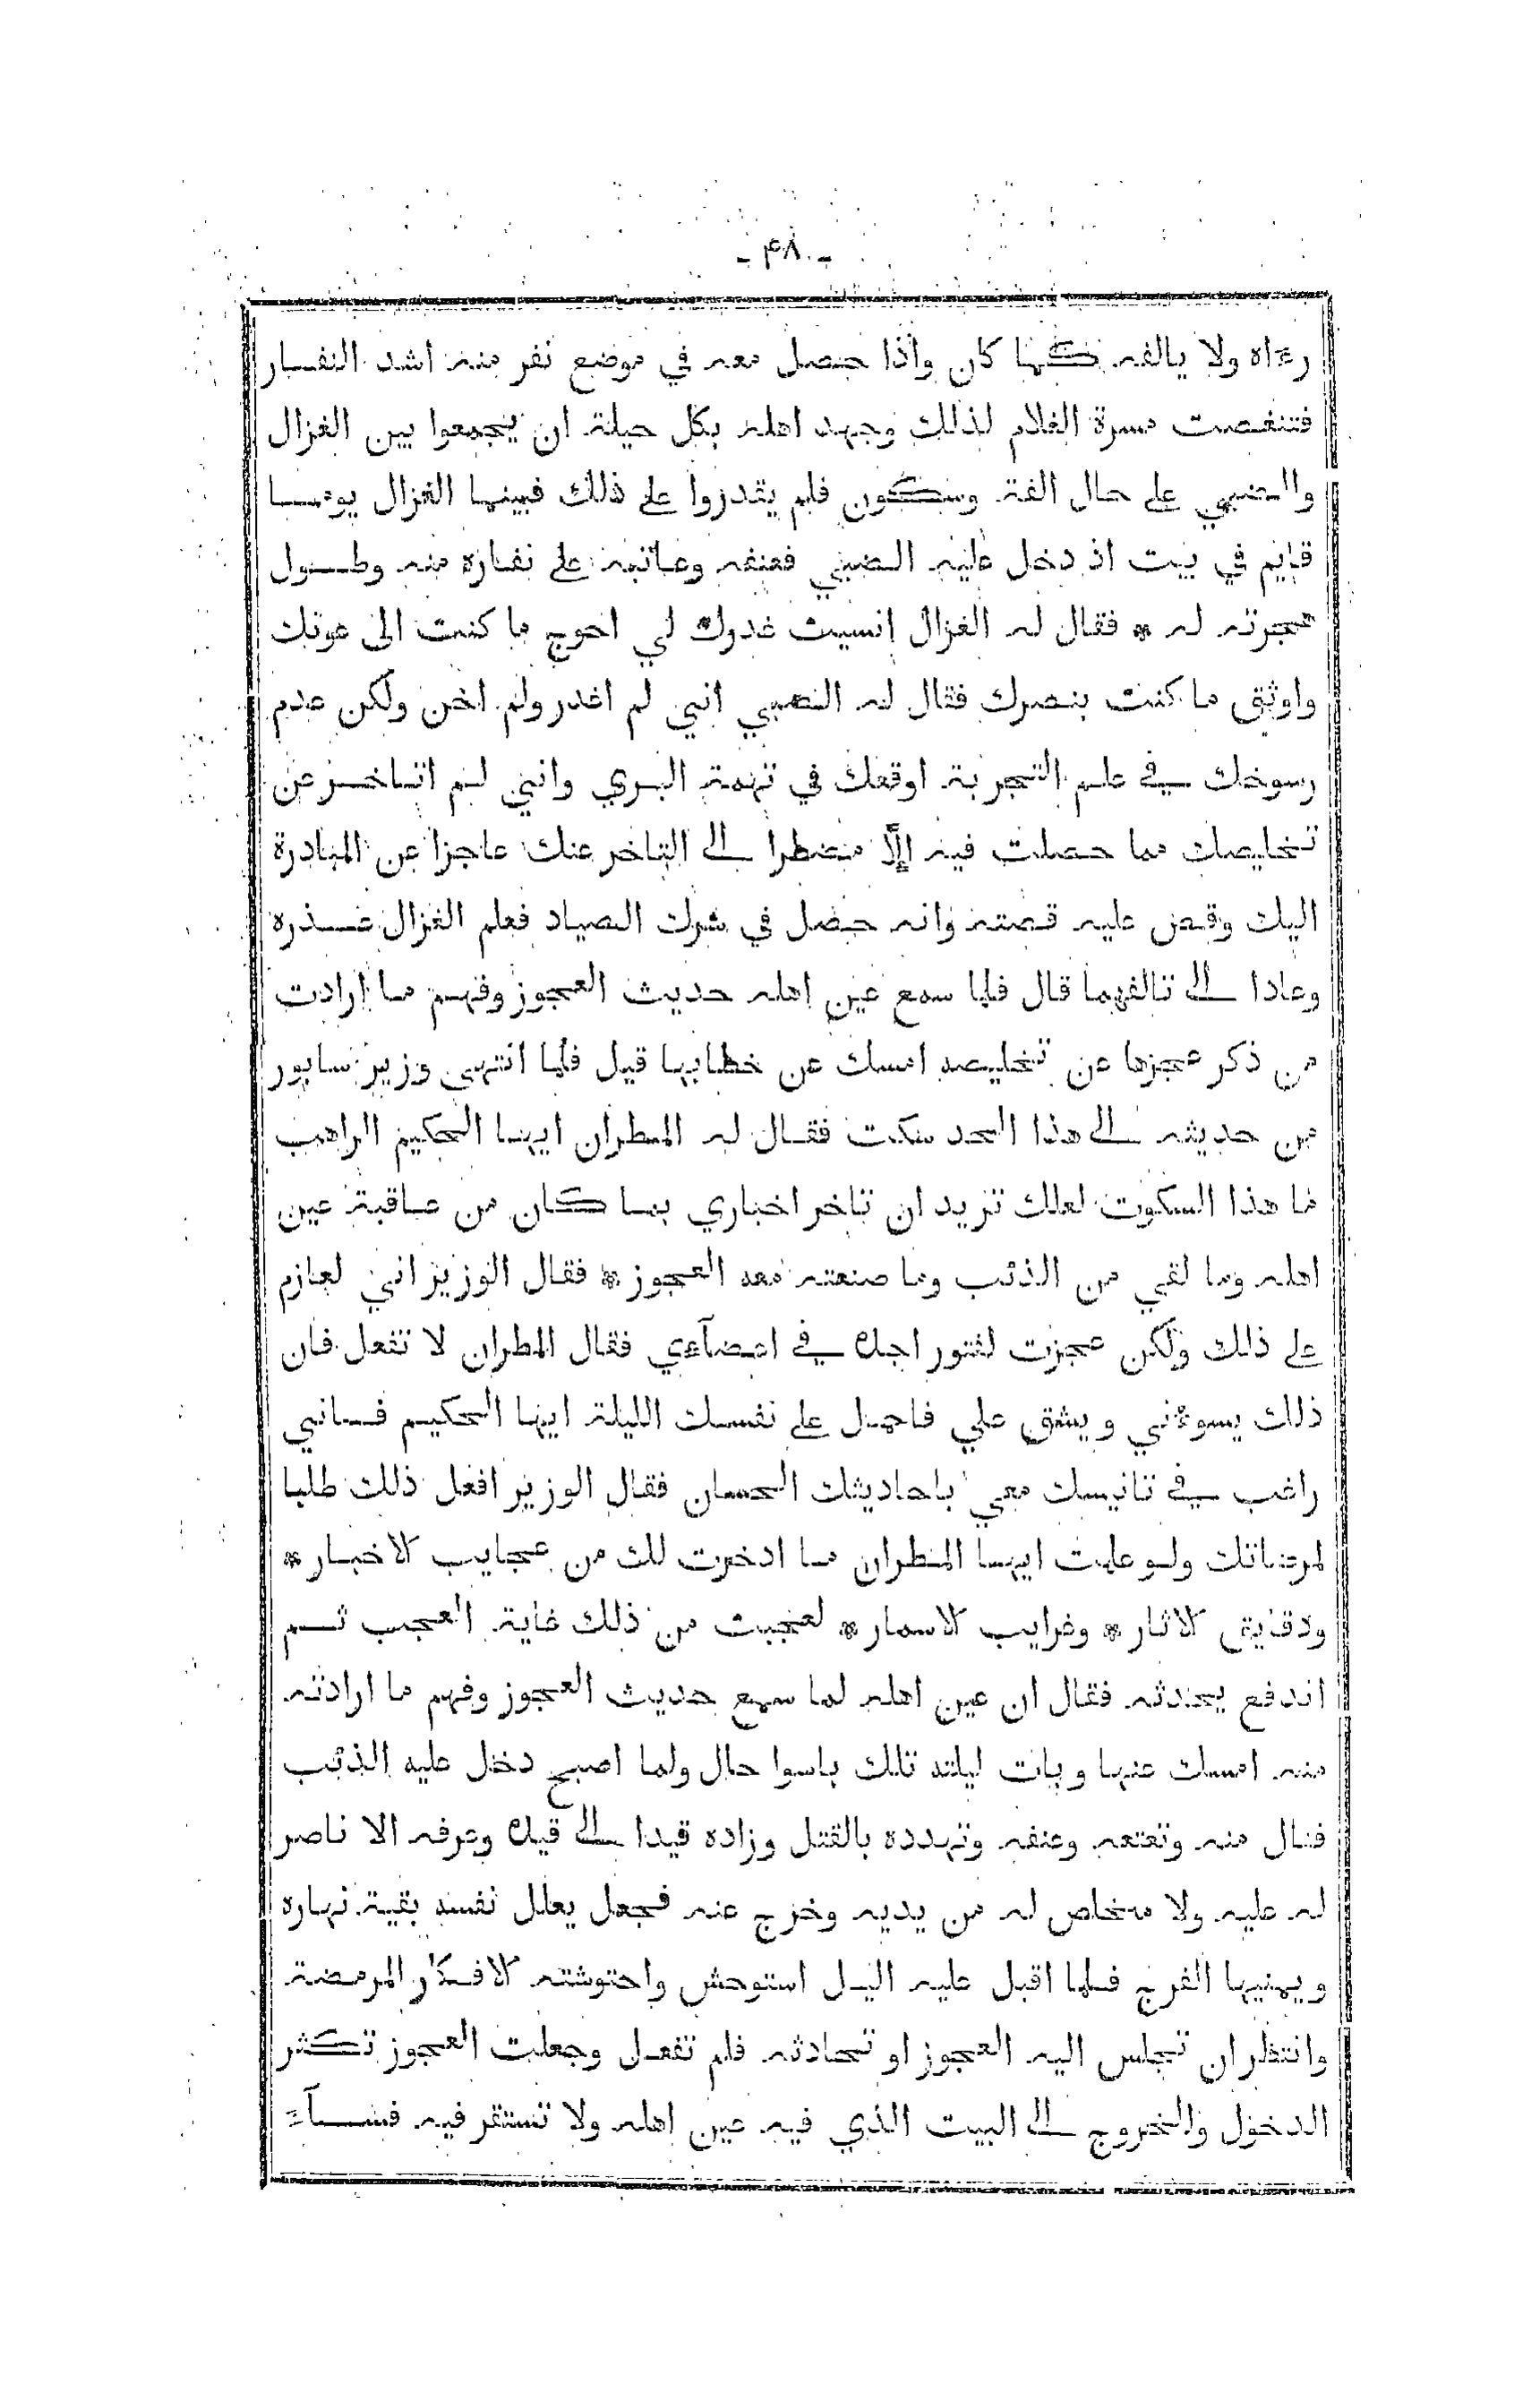 - ۴۸ -
رءاه ولا يالفه كمها كان واذا حصل معه في موضع نفر منه اشد النفار
فتنغصت مسرة الغلام لذلك وجهد اهله بكل حيلة ان يجمعوا بين الغزال
والصبي على حال الفة وسكون فلم يقدروا على ذلك فبينما الغزال يوما
قايم في بيت اذ دخل عليه الصبي فعنفه وعاتبه على نفاره منه وطول
هجرته له * فقال له الغزال انسيت غدرك لي احوج ما كنت الى عونك
واوثق ما كنت بنصرك فقال له الصبي انني لم اغدر ولم اخن ولكن عدم
رسوخك في علم التجربة اوقعك في تهمة البري وانني لم اتاخر عن
تخليصك مما حصلت فيه إلّا مضطرا الى التاخر عنك عاجزا عن المبادرة
اليك وقص عليه قصته وانه حصل في شرك الصياد فعلم الغزال عذره
وعادا الى تالفهما قال فلما سمع عين اهله حديث العجوز وفهم ما ارادت
من ذكر عجزها عن تخليصه امسك عن خطابها قيل فلما انتهى وزير سابور
من حديثه الى هذا الحد سكت فقال له المطران ايها الحكيم الراهب
ما هذا السكوت لعلك تريد ان تاخر اخباري بما كان من عاقبة عين
اهله وما لقي من الذئب وما صنعته معه العجوز * فقال الوزير اني لعازم
على ذلك ولكن عجزت لفتور اجده في اعضآءي فقال المطران لا تفعل فان
ذلك يسوءني ويشق علي فاحمل على نفسك الليلة ايها الحكيم فانني
راغب في تانيسك معي باحاديثك الحسان فقال الوزير افعل ذلك طلبا
لمرضاتك ولو علمت ايها المطران ما ادخرت لك من عجايب الاخبار *
ودقايق الاثار * وغرايب الاسمار * لعجبت من ذلك غاية العجب ثم
اندفع يحدثه فقال ان عين اهله لما سمع حديث العجوز وفهم ما ارادته
منه امسك عنها وبات ليلته تلك باسوا حال ولما اصبح دخل عليه الذئب
فنال منه وتعتعه وعنفه وتهدده بالقتل وزاده قيدا الى قيده وعرفه الا ناصر
له عليه ولا مخلص له من يديه وخرج عنه فجعل يعلل نفسه بقية نهاره
ويمنيها الفرج فلما اقبل عليه اليل استوحش واحتوشته الافكار المرمضة
وانتظر ان تجلس اليه العجوز او تحادثه فلم تفعل وجعلت العجوز تكثر
الدخول والخروج الى البيت الذي فيه عين اهله ولا تستقر فيه فسآء